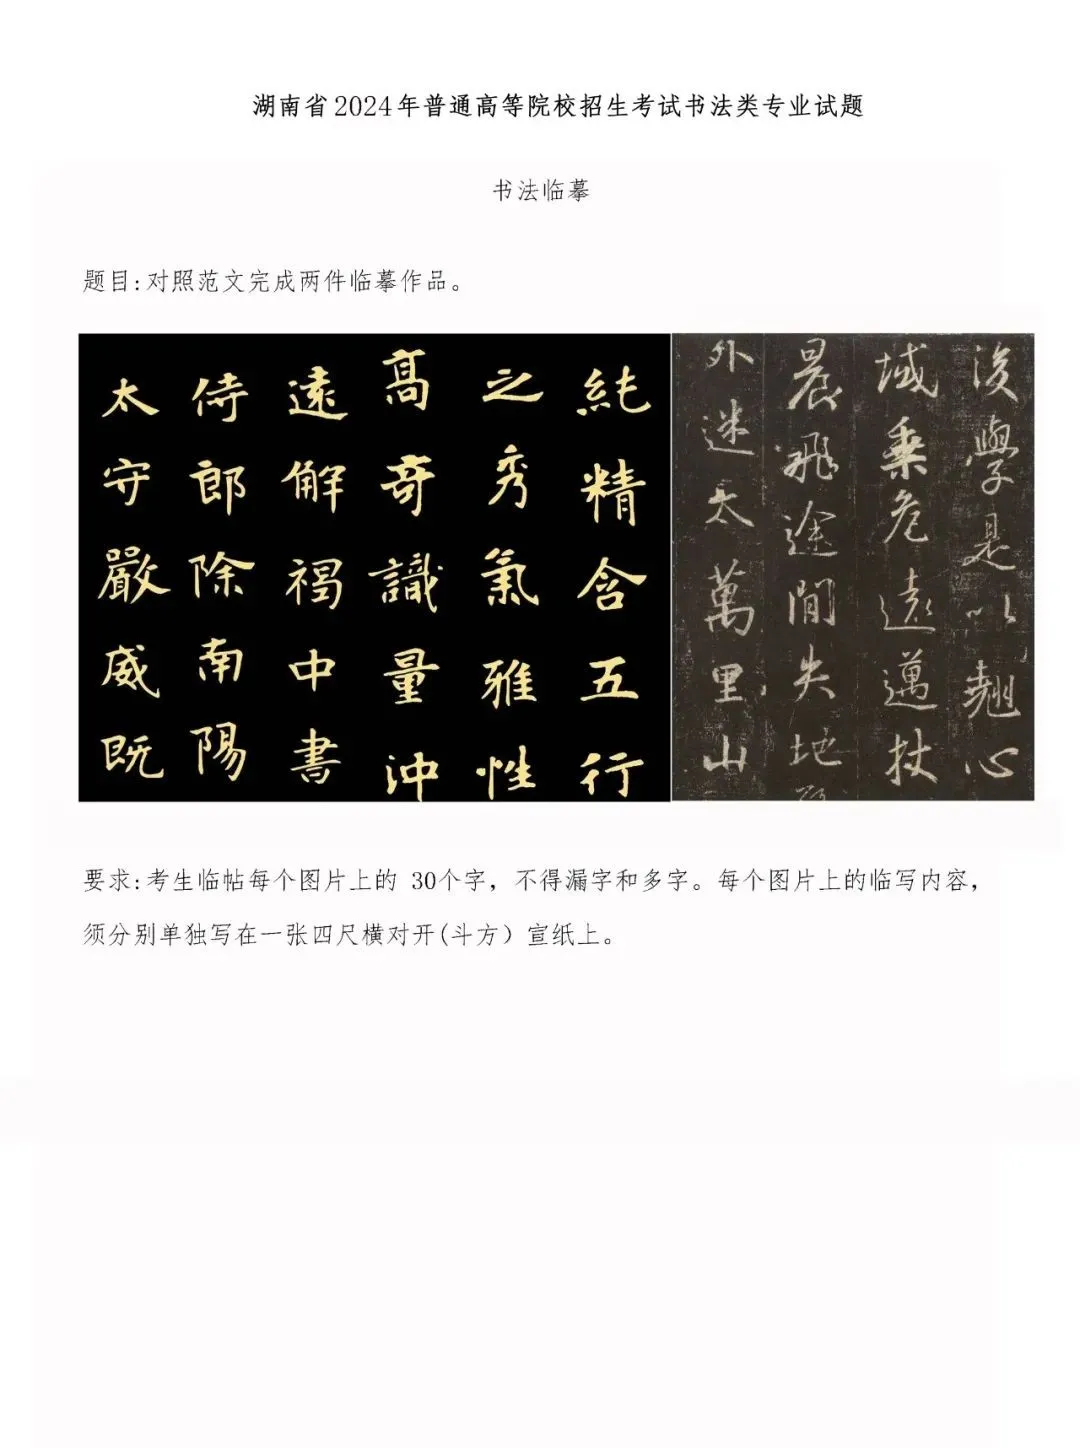 湖南省2024年普通高等院校招生考试书法类专业试题
书法临摹
题目:对照范文完成两件临摹作品。
純精含五行
之秀氣雅性
高奇識量沖
遠解褐中書
侍郎除南陽
太守嚴威既
後學是以翹心
域乗危遠邁杖
晨飛途間失地
外迷天萬里山
要求:考生临帖每个图片上的 30个字，不得漏字和多字。每个图片上的临写内容，
须分别单独写在一张四尺横对开(斗方）宣纸上。